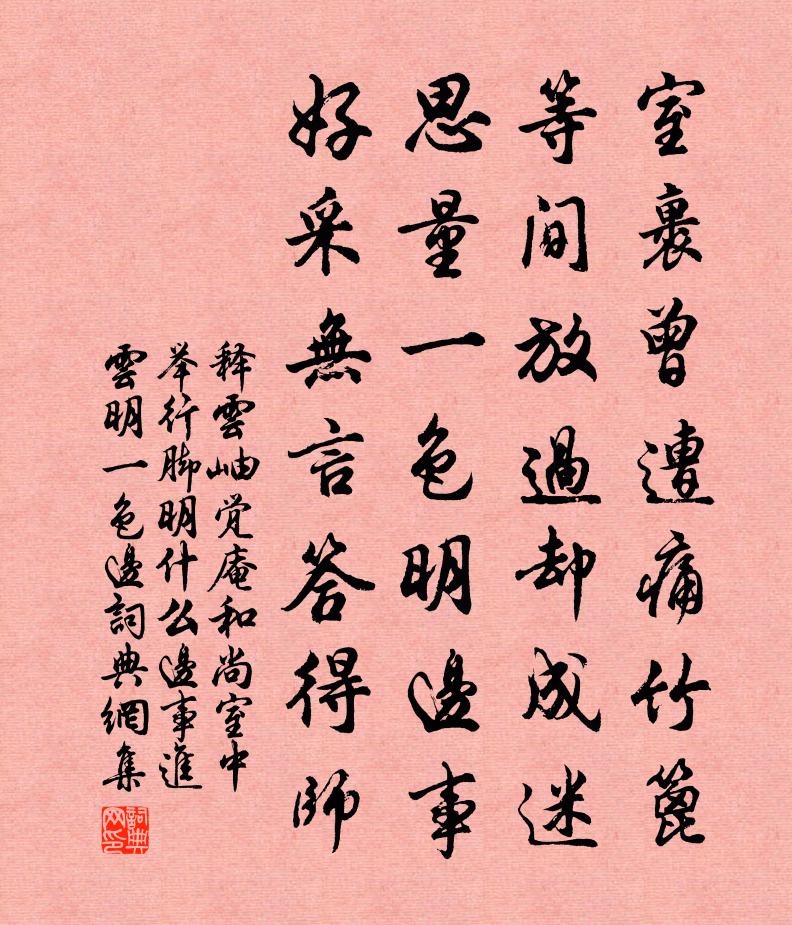 室裏曾遭痛竹篦
等间放過却成迷
思量一色明邊事
好采無言答得師
释雲岫觉庵和尚室中
举行脚明什么邊事進
雲明一色邊詞典網集
詞典网印